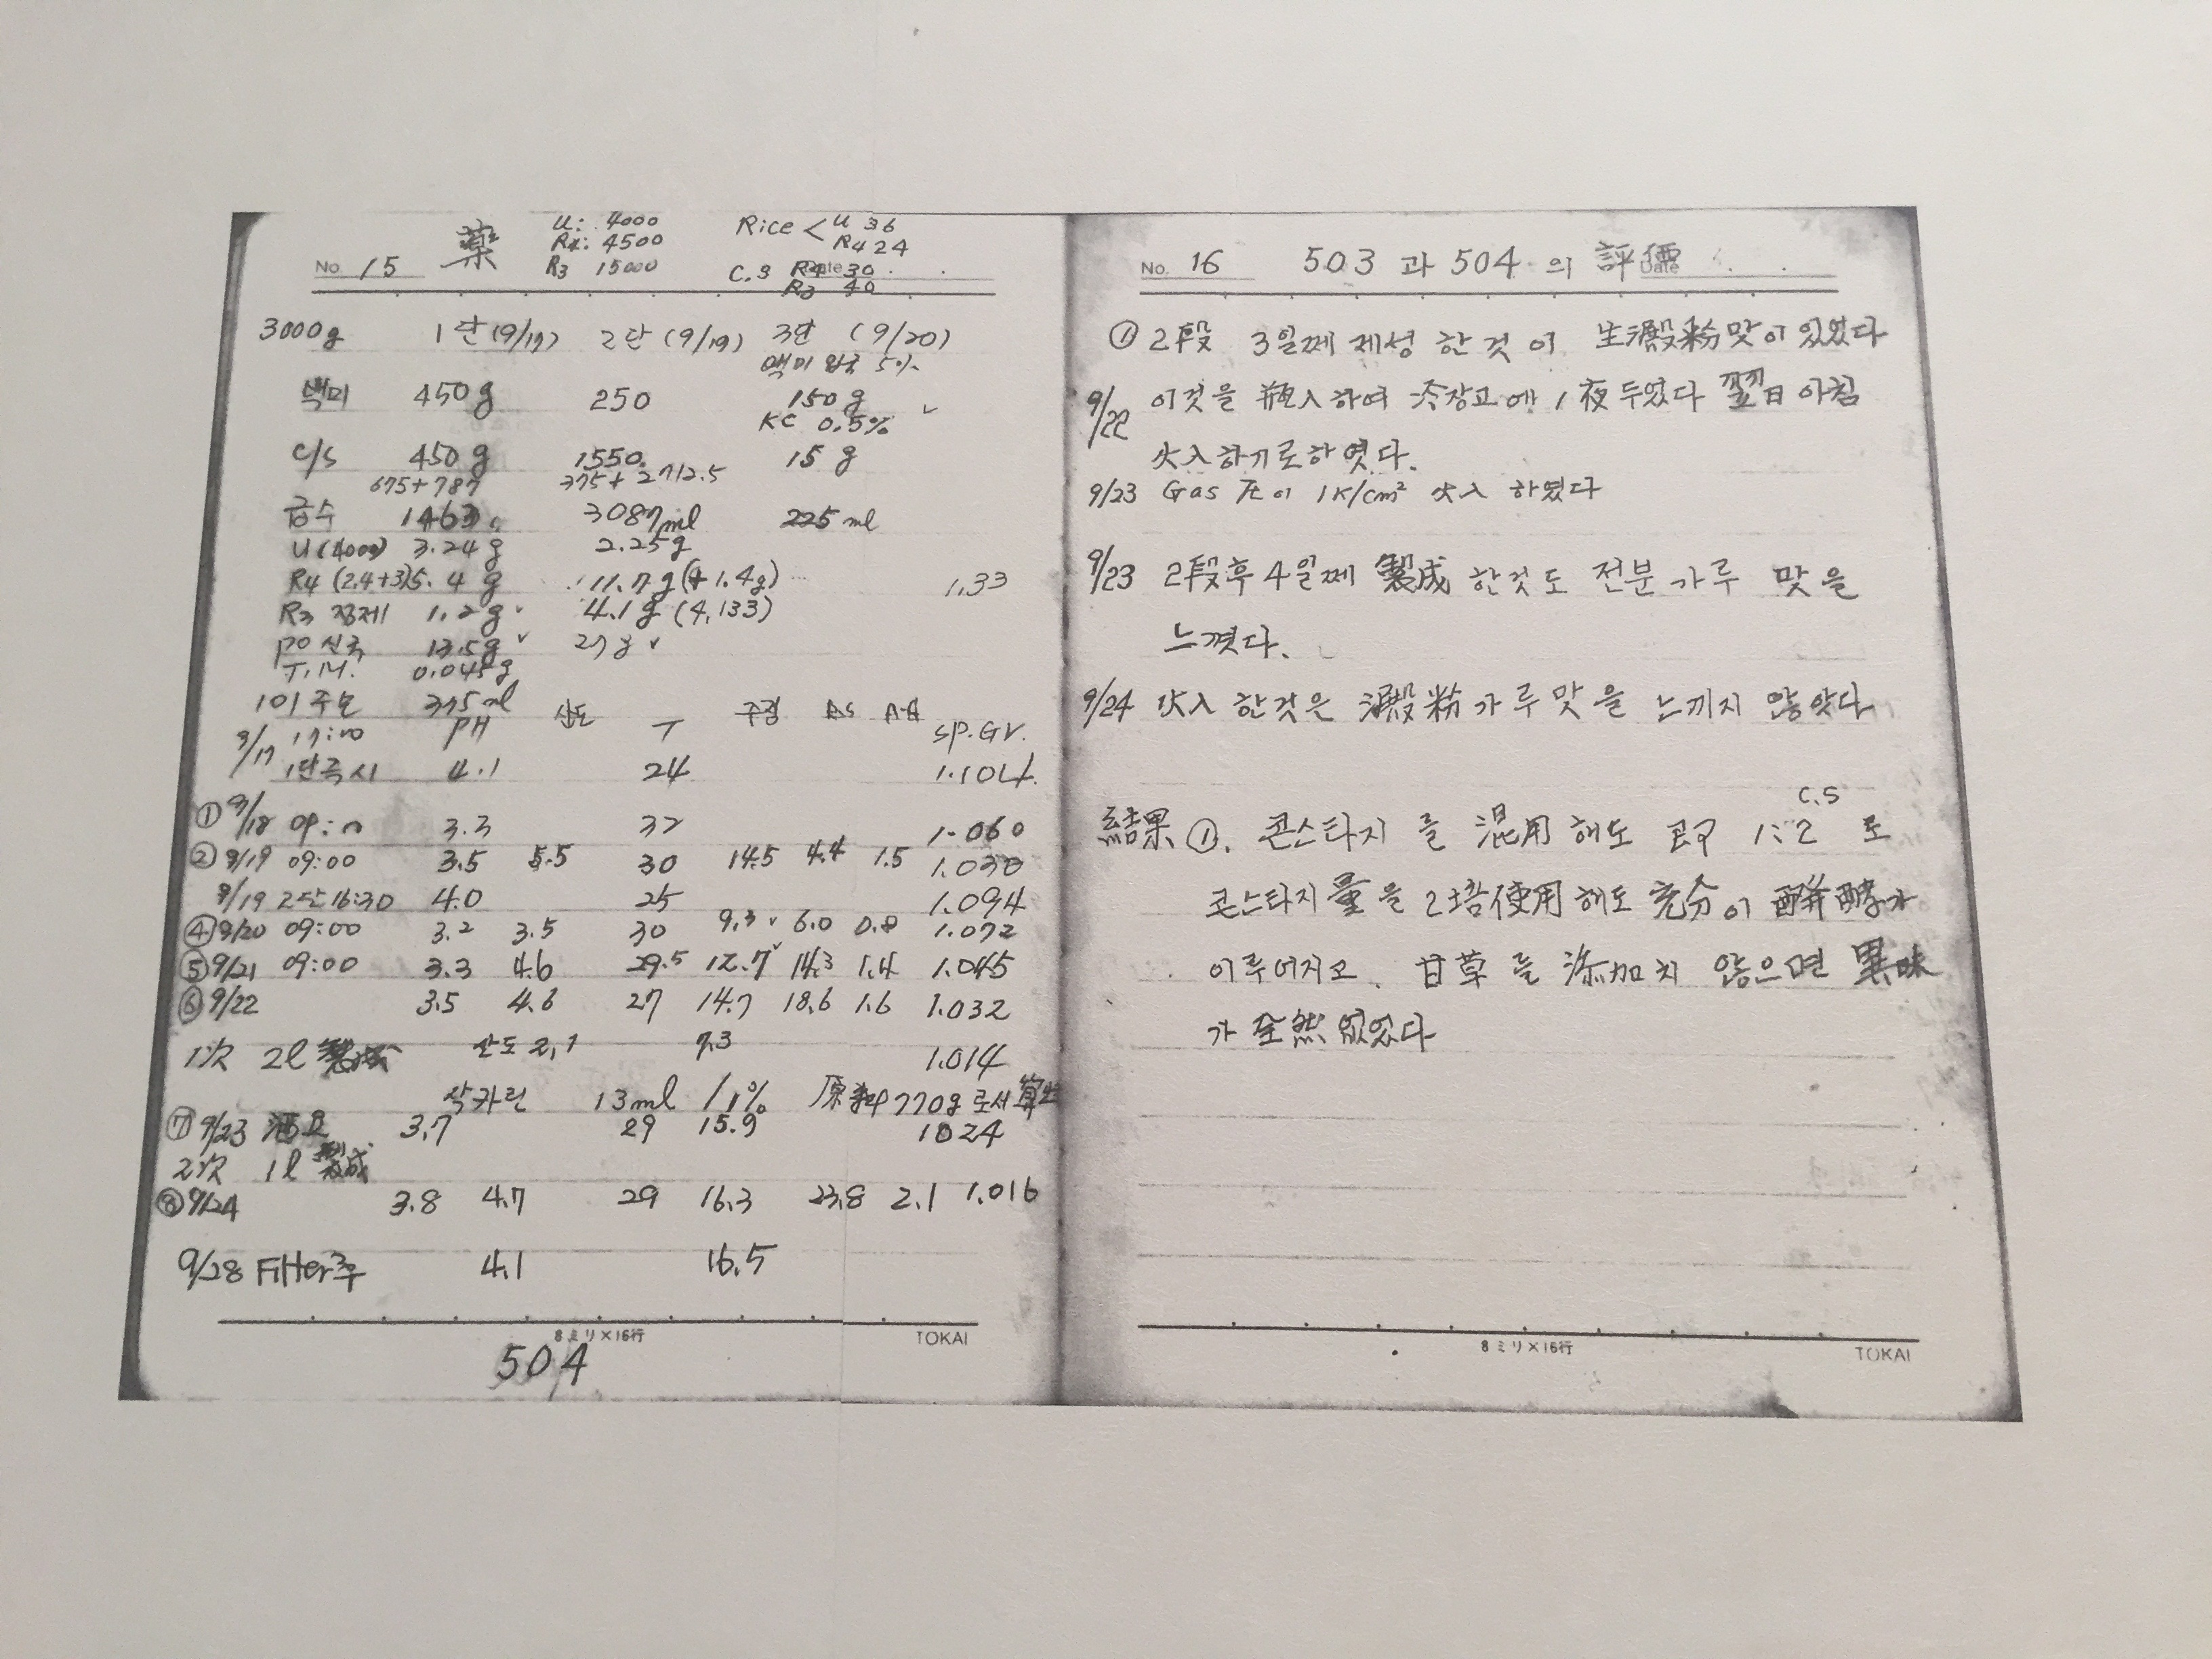 No. 15 薬 U: 4000 Rice < U 36
R4: 4500 R4 24
R3 15000 C.S R4 30
R3 40
Date
3000g 1단(9/17) 2단(9/19) 3단 (9/20)
백미 입국 5%
백미 450g 250 150g
KC 0.5%
C/S 450g 1550 15g
675+787 375+2712.5
급수 1463 3087ml 225ml
U(4000) 3.24g 2.25g
R4 (2.4+3)5.4g 11.7g(+1.4g) 1.33
R3 정제 1.2g 4.1g (4.133)
PO 신국 13.5g 27g
T.M. 0.045g
101 주모 375ml
9/17 17:00 PH 산도 T 주정 sp.Gr.
1단즉시 4.1 24 1.104
① 9/18 09:00 3.3 32 1.060
② 9/19 09:00 3.5 5.5 30 14.5 4.4 1.5 1.030
9/19 2단16:30 4.0 25 1.094
④ 9/20 09:00 3.2 3.5 30 9.3 6.0 0.8 1.072
⑤ 9/21 09:00 3.3 4.6 29.5 12.7 14.3 1.4 1.045
⑥ 9/22 3.5 4.6 27 14.7 18.6 1.6 1.032
1次 2l 製成 산도 2.1 7.3 1.014
삭카린 13ml /1% 原料 770g 로서 算出
⑦ 9/23 3.7 29 15.9 1024
2次 1l 製成
⑧ 9/24 3.8 4.7 29 16.3 23.8 2.1 1.016
9/28 Filter후 4.1 16.5
8ミリ×16行 TOKAI
504
No. 16 503 과 504 의 評価
Date
① 2段 3일째 제성 한것이 生澱粉맛이 있었다
9/22 이것을 瓶入하여 冷장고에 1夜 두었다 翌日 아침
火入하기로하엿다.
9/23 Gas 压이 1K/cm² 火入 하였다
9/23 2段후 4일째 製成 한것도 전분 가루 맛을
느꼇다.
9/24 火入 한것은 澱粉가루맛을 느끼지 않앗다
C.S
結果 ①. 콘스타지를 混用해도 卽 1:2 로
콘스타지量을 2培使用해도 充分이 醱酵가
이루어지고. 甘草를 添加치 않으면 異味
가 全然 없었다
8ミリ×16行 TOKAI